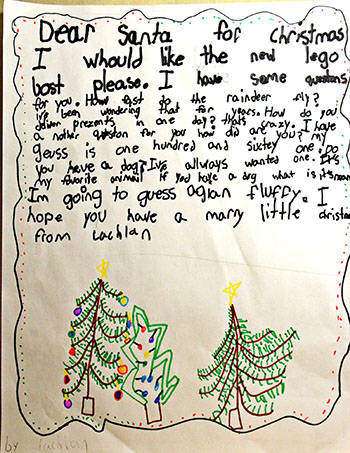 Dear Santa for christmas
I whould like the new lego
bost please. I have some questions
for you. How fast do the raindeer fly?
I've been wondering that for years. How do you
deliver presents in one day? that's crazy. I have
a nother qusten for you how old are you? my
geuss is one hundred and sixtey one. Do
you have a dog? I've allways wanted one. It's
my favorite animal if you have a dog what is it's name
Im going to guess agian fluffy. I
hope you have a marry little christmas
from Lachlan
by Lachlan